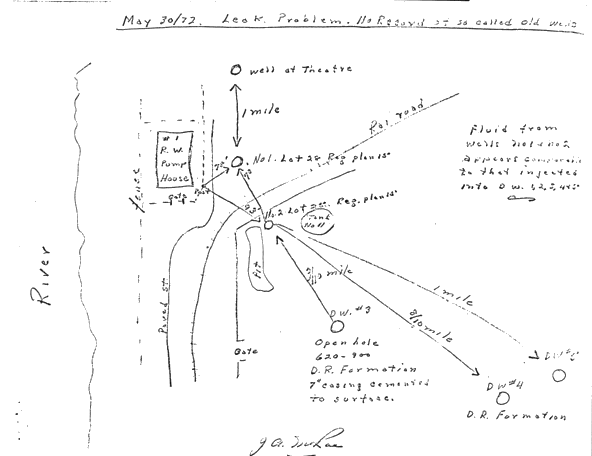 May 30/72. Leak Problem. No Record of so called Old Wells
well at Theatre
1 mile
Rail road
Fluid from
wells No 1 & No 2
appears comparable
to that injected
into D.W. 1, 2, 3, 4 & 5
#1
R.W.
Pump
House
No 1. Lot 28 Reg. plan 15
Fence
gate
No. 2 Lot Reg. plan 15
Tank
No 11
River
Pit
Paved St
mile
1 mile
8/10 mile
D.W. #3
Gate
Open hole
620-900
D.R. Formation
7" casing cemented
to surface.
D.W.
D W #4
D.R. Formation